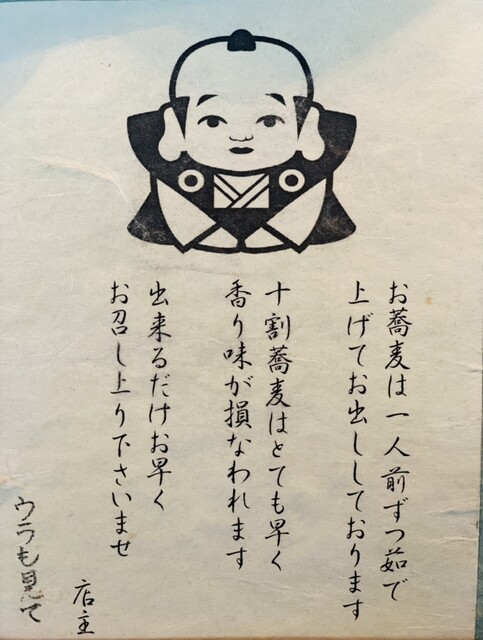 お蕎麦は一人前ずつ茹で
上げてお出ししております
十割蕎麦はとても早く
香り味が損なわれます
出来るだけお早く
お召し上り下さいませ
店主
ウラも見て